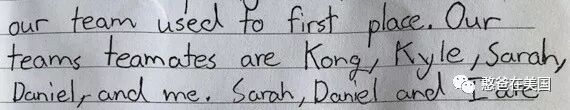 our team used to first place. Our
teams teamates are Kong, Kyle, Sarah,
Daniel, and me. Sarah, Daniel and I are
憨爸在美国